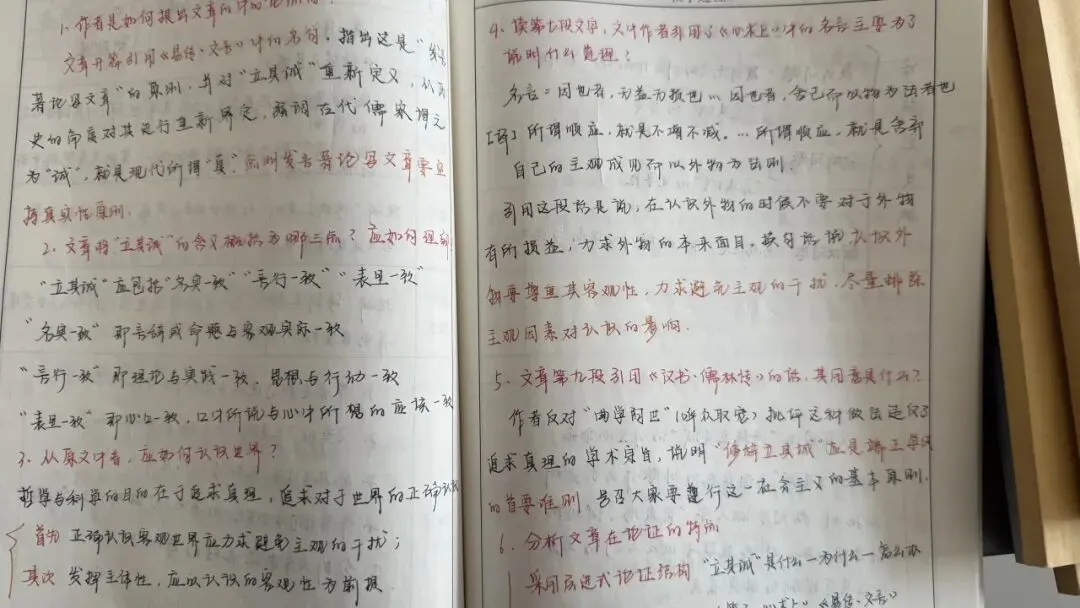 1. 作者是如何提出文章的中心论点的?
文章开篇引用《易传·文言》中的名句,指出这是“发言
著论写文章”的原则,并对“立其诚”重新定义,从历
史的角度对其进行重新界定,强调古代儒家谓之
为“诚”,就是现代所谓“真”,原则发言著论写文章要坚
持真实性原则.
2. 文章将“立其诚”的含义概括为哪三点?应如何理解
“立其诚”应包括“名实一致”“言行一致”“表里一致”
“名实一致” 即言辞或命题与客观实际一致
“言行一致” 即理论与实践一致,思想与行动一致
“表里一致” 即心口一致,口中所说与心中所想的应该一致
3. 从原文中看,应如何认识世界?
哲学与科学的目的在于追求真理,追求对于世界的正确认识
首先 正确认识客观世界应力求避免主观的干扰;
其次 发挥主体性,应以认识的客观性为前提.
4. 读第七段文字,文中作者引用了《心术上》中的名言主要为了
说明什么道理?
名言:因也者,无益无损也…因也者,舍己而以物为法者也
[译] 所谓顺应,就是不增不减.…所谓顺应,就是舍弃
自己的主观成见而以外物为法则.
引用这段话是说,在认识外物的时候不要对于外物
有所损益,力求外物的本来面目,换句话说认识外
物要尊重其客观性,力求避免主观的干扰,尽量排除
主观因素对认识的影响.
5. 文章第九段引用《汉书·儒林传》的话,其用意是什么?
作者反对“曲学阿世”(哗众取宠)批评这种做法违反了
追求真理的学术宗旨,说明“修辞立其诚”应是端正学风
的首要准则,号召大家要遵行这一社会主义的基本原则.
6. 分析文章在论证的特点
采用层进式论证结构 “立其诚”是什么—为什么—怎么办
《心术上》《易传·文言》